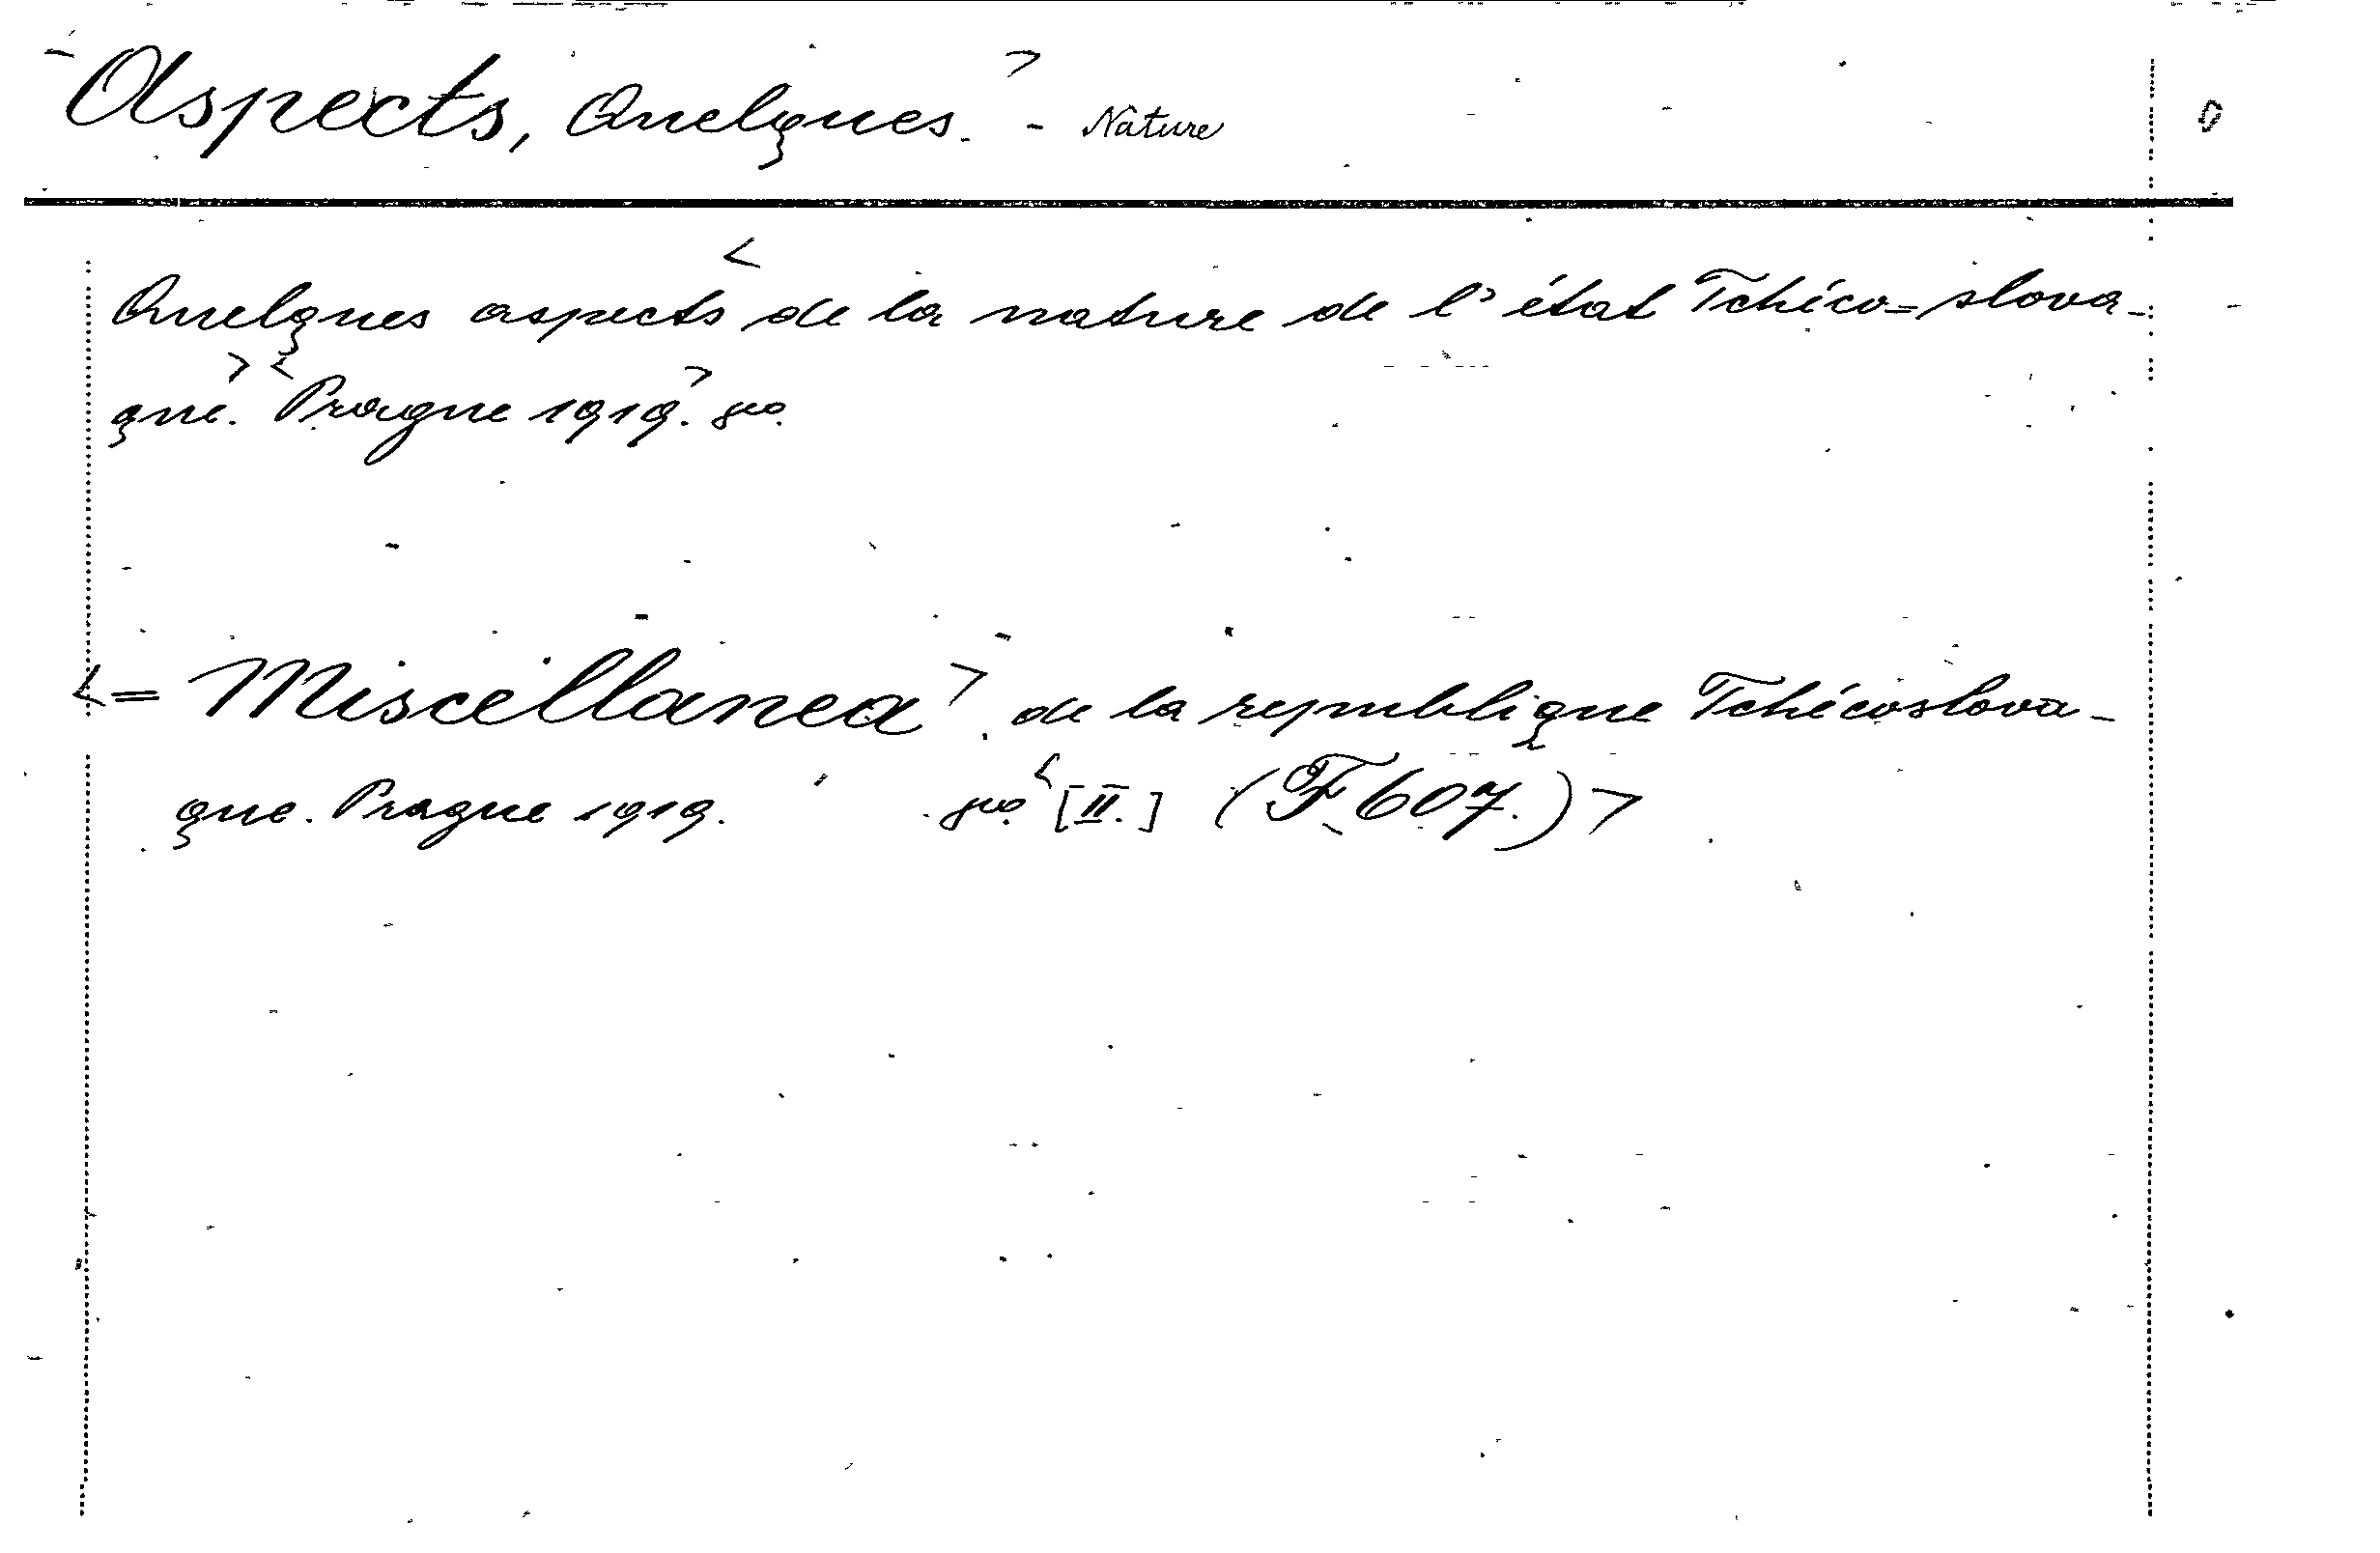 Aspects, Quelques. - Nature
Quelques aspects de la nature de l'état Tchéco=slova-
que. Prague 1919. 8vo.
= Miscellanea. de la republique Tchécoslova-
que. Prague 1919. 8vo. [II.] (F 607.)